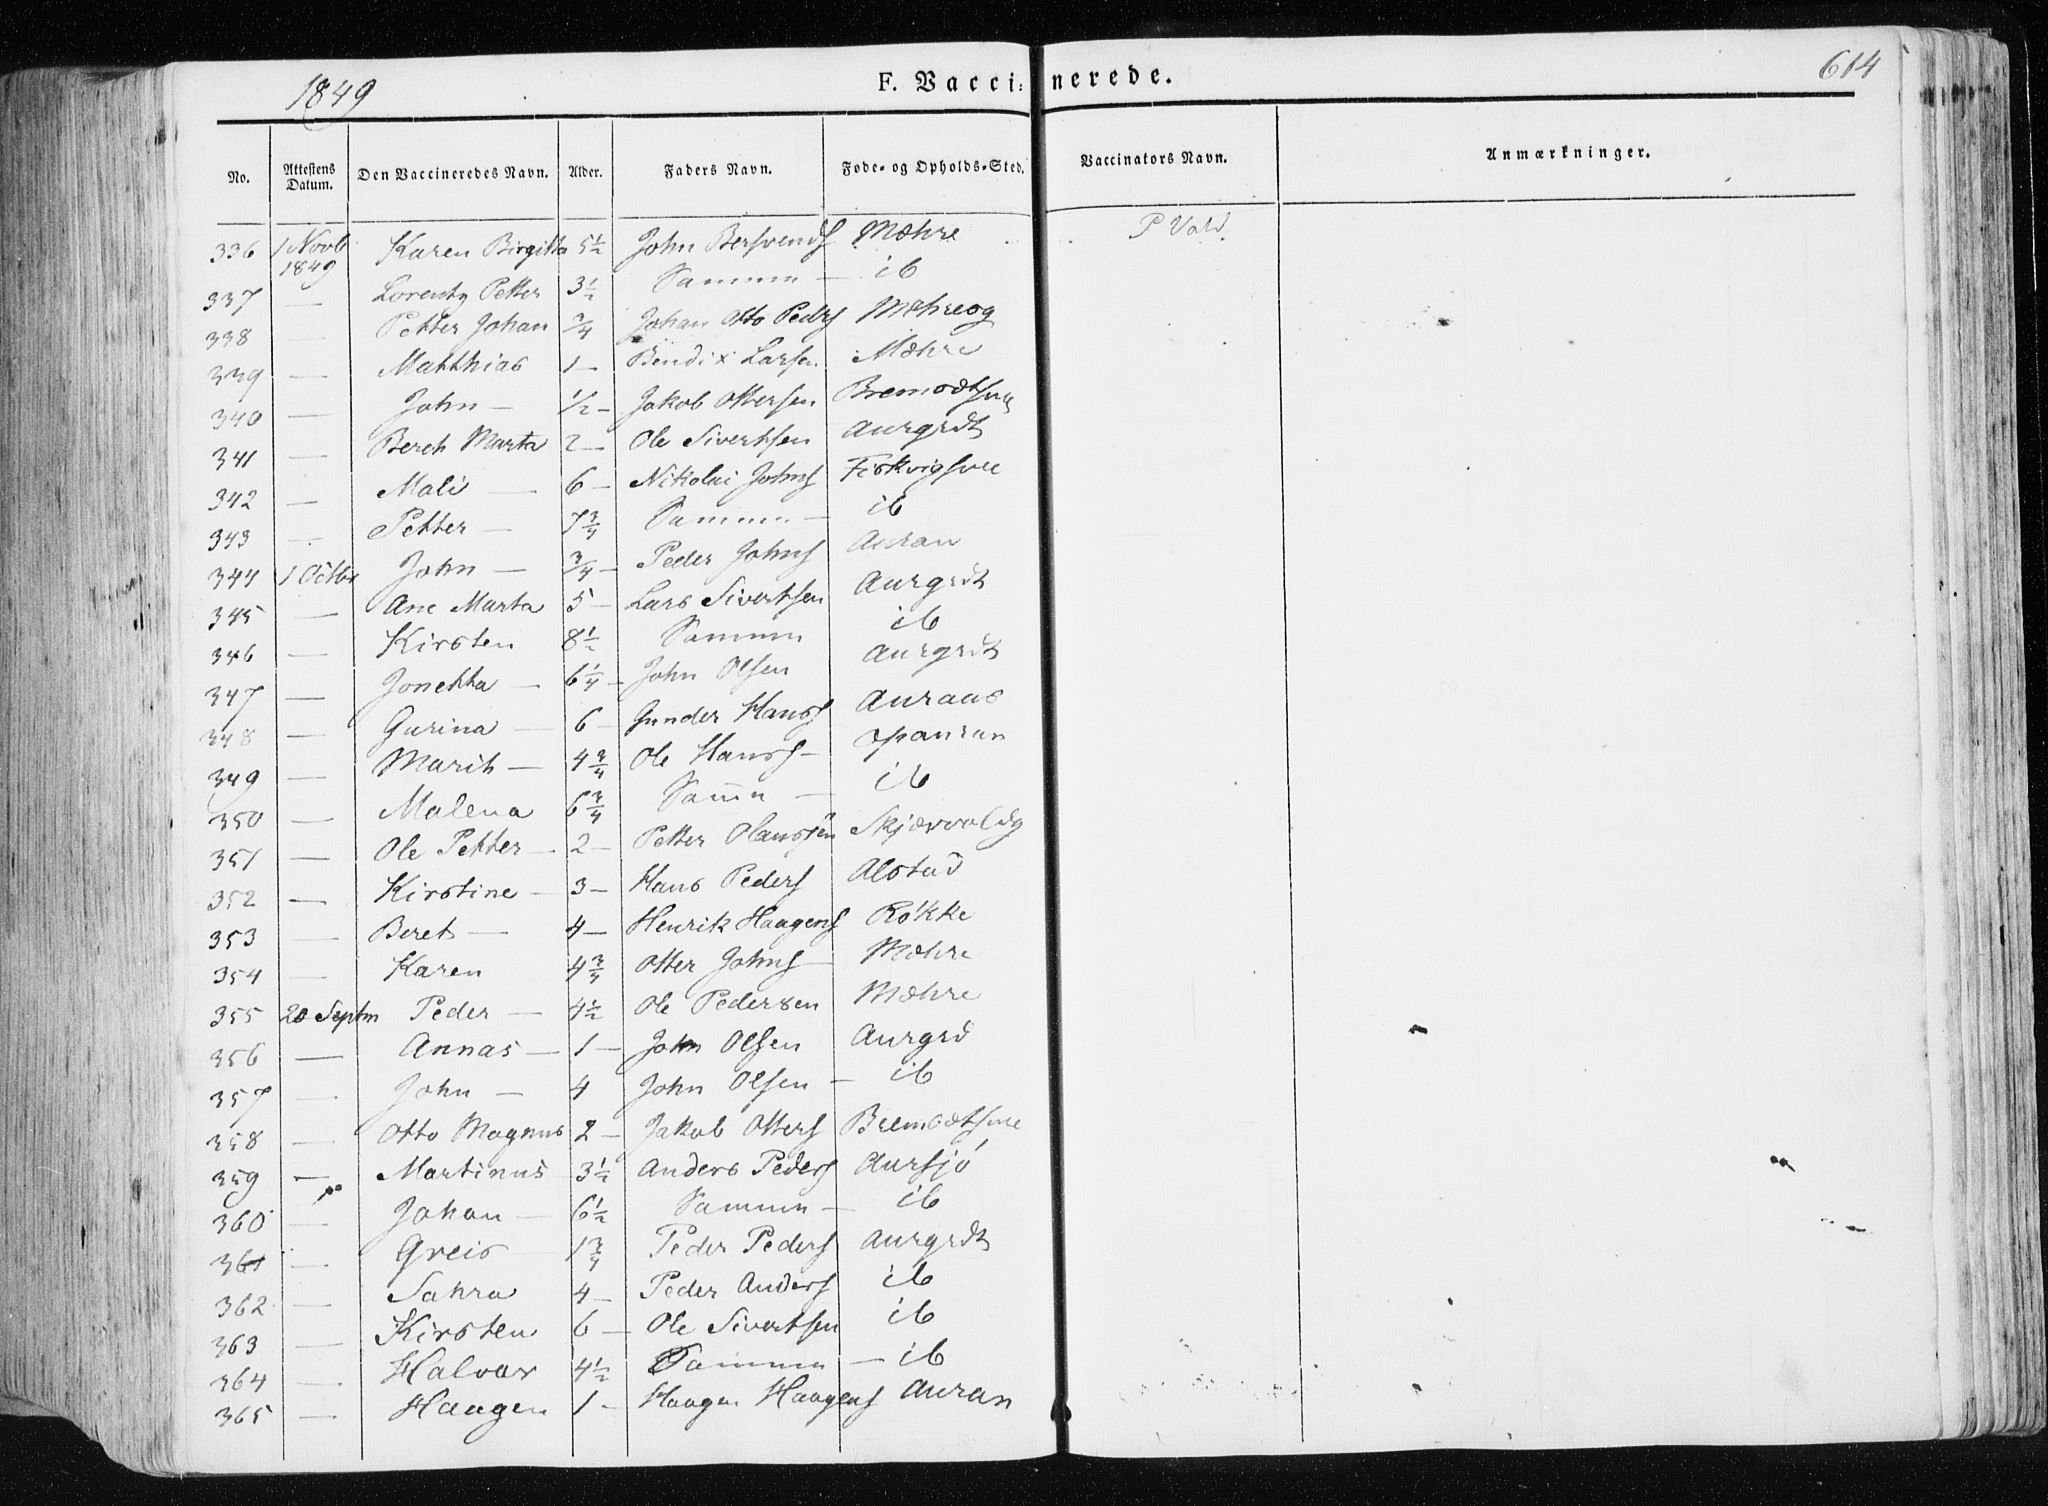 1849
F. Vaccinerede.
614
No. Attestens Datum. Den Vaccineredes Navn. Alder. Faders Navn. Føde- og Opholds-Sted. Vaccinators Navn. Anmærkninger.
336 1 Novb 1849 Karen Birgitta 5½ John Bersvends Mæhre P Vold
337 — Lorentz Petter 3½ Samme — ib
338 — Petter Johan ¾ Johan Otto Peders Mæhreeg
339 — Matthias 1 — Bendix Larsen Mæhre
340 — John — ½ — Jakob Ottersen
341 — Bereh Marta 2 — Ole Sivertsen Aurgrdt
342 — Mali — 6 — Nikolai Johns Fiskvigsvee
343 — Petter — 7¾ Samme — ib
344 1 Octbr John — ¾ — Peder Johns Auran
345 — Ane Marta 5 — Lars Sivertsen Aurgrdt
346 — Kirsten 8½ Samme ib
347 — Jonetta — 6¼ — John Olsen Aurgrdt
348 — Gurina — 6 — Gunder Hans Auraas
349 — Marit — 4¾ Ole Hans — Opauran
350 — Malena 6¾ Samme — ib
351 — Ole Petter — 2 — Petter Hanssen
352 — Kirstine — 3 — Hans Peders Alstad
353 — Beret — 4 — Henrik Haagens Røkke
354 — Karen 4¾ Otter Johns — Mæhre
355 20 Septm Peder — 4½ Ole Pedersen Mæhre
356 — Annas — 1 — John Olsen Aurgrd
357 — John — 4 John Olsen — ib
358 — Otto Magnus 2 — Jakob Otters Bremsætsvee
359 — Martinus 3½ Anders Peders Aursjø
360 — Johan — 6½ Samme — ib
361 — Greis — 1¾ Peder Peders Aurgrdt
362 — Sahra 4 — Peder Anders ib
363 — Kirsten 6 — Ole Sivertsen ib
364 — Halvar 4½ Samme — ib
365 — Haagen 1 — Haagen Haagens Auran